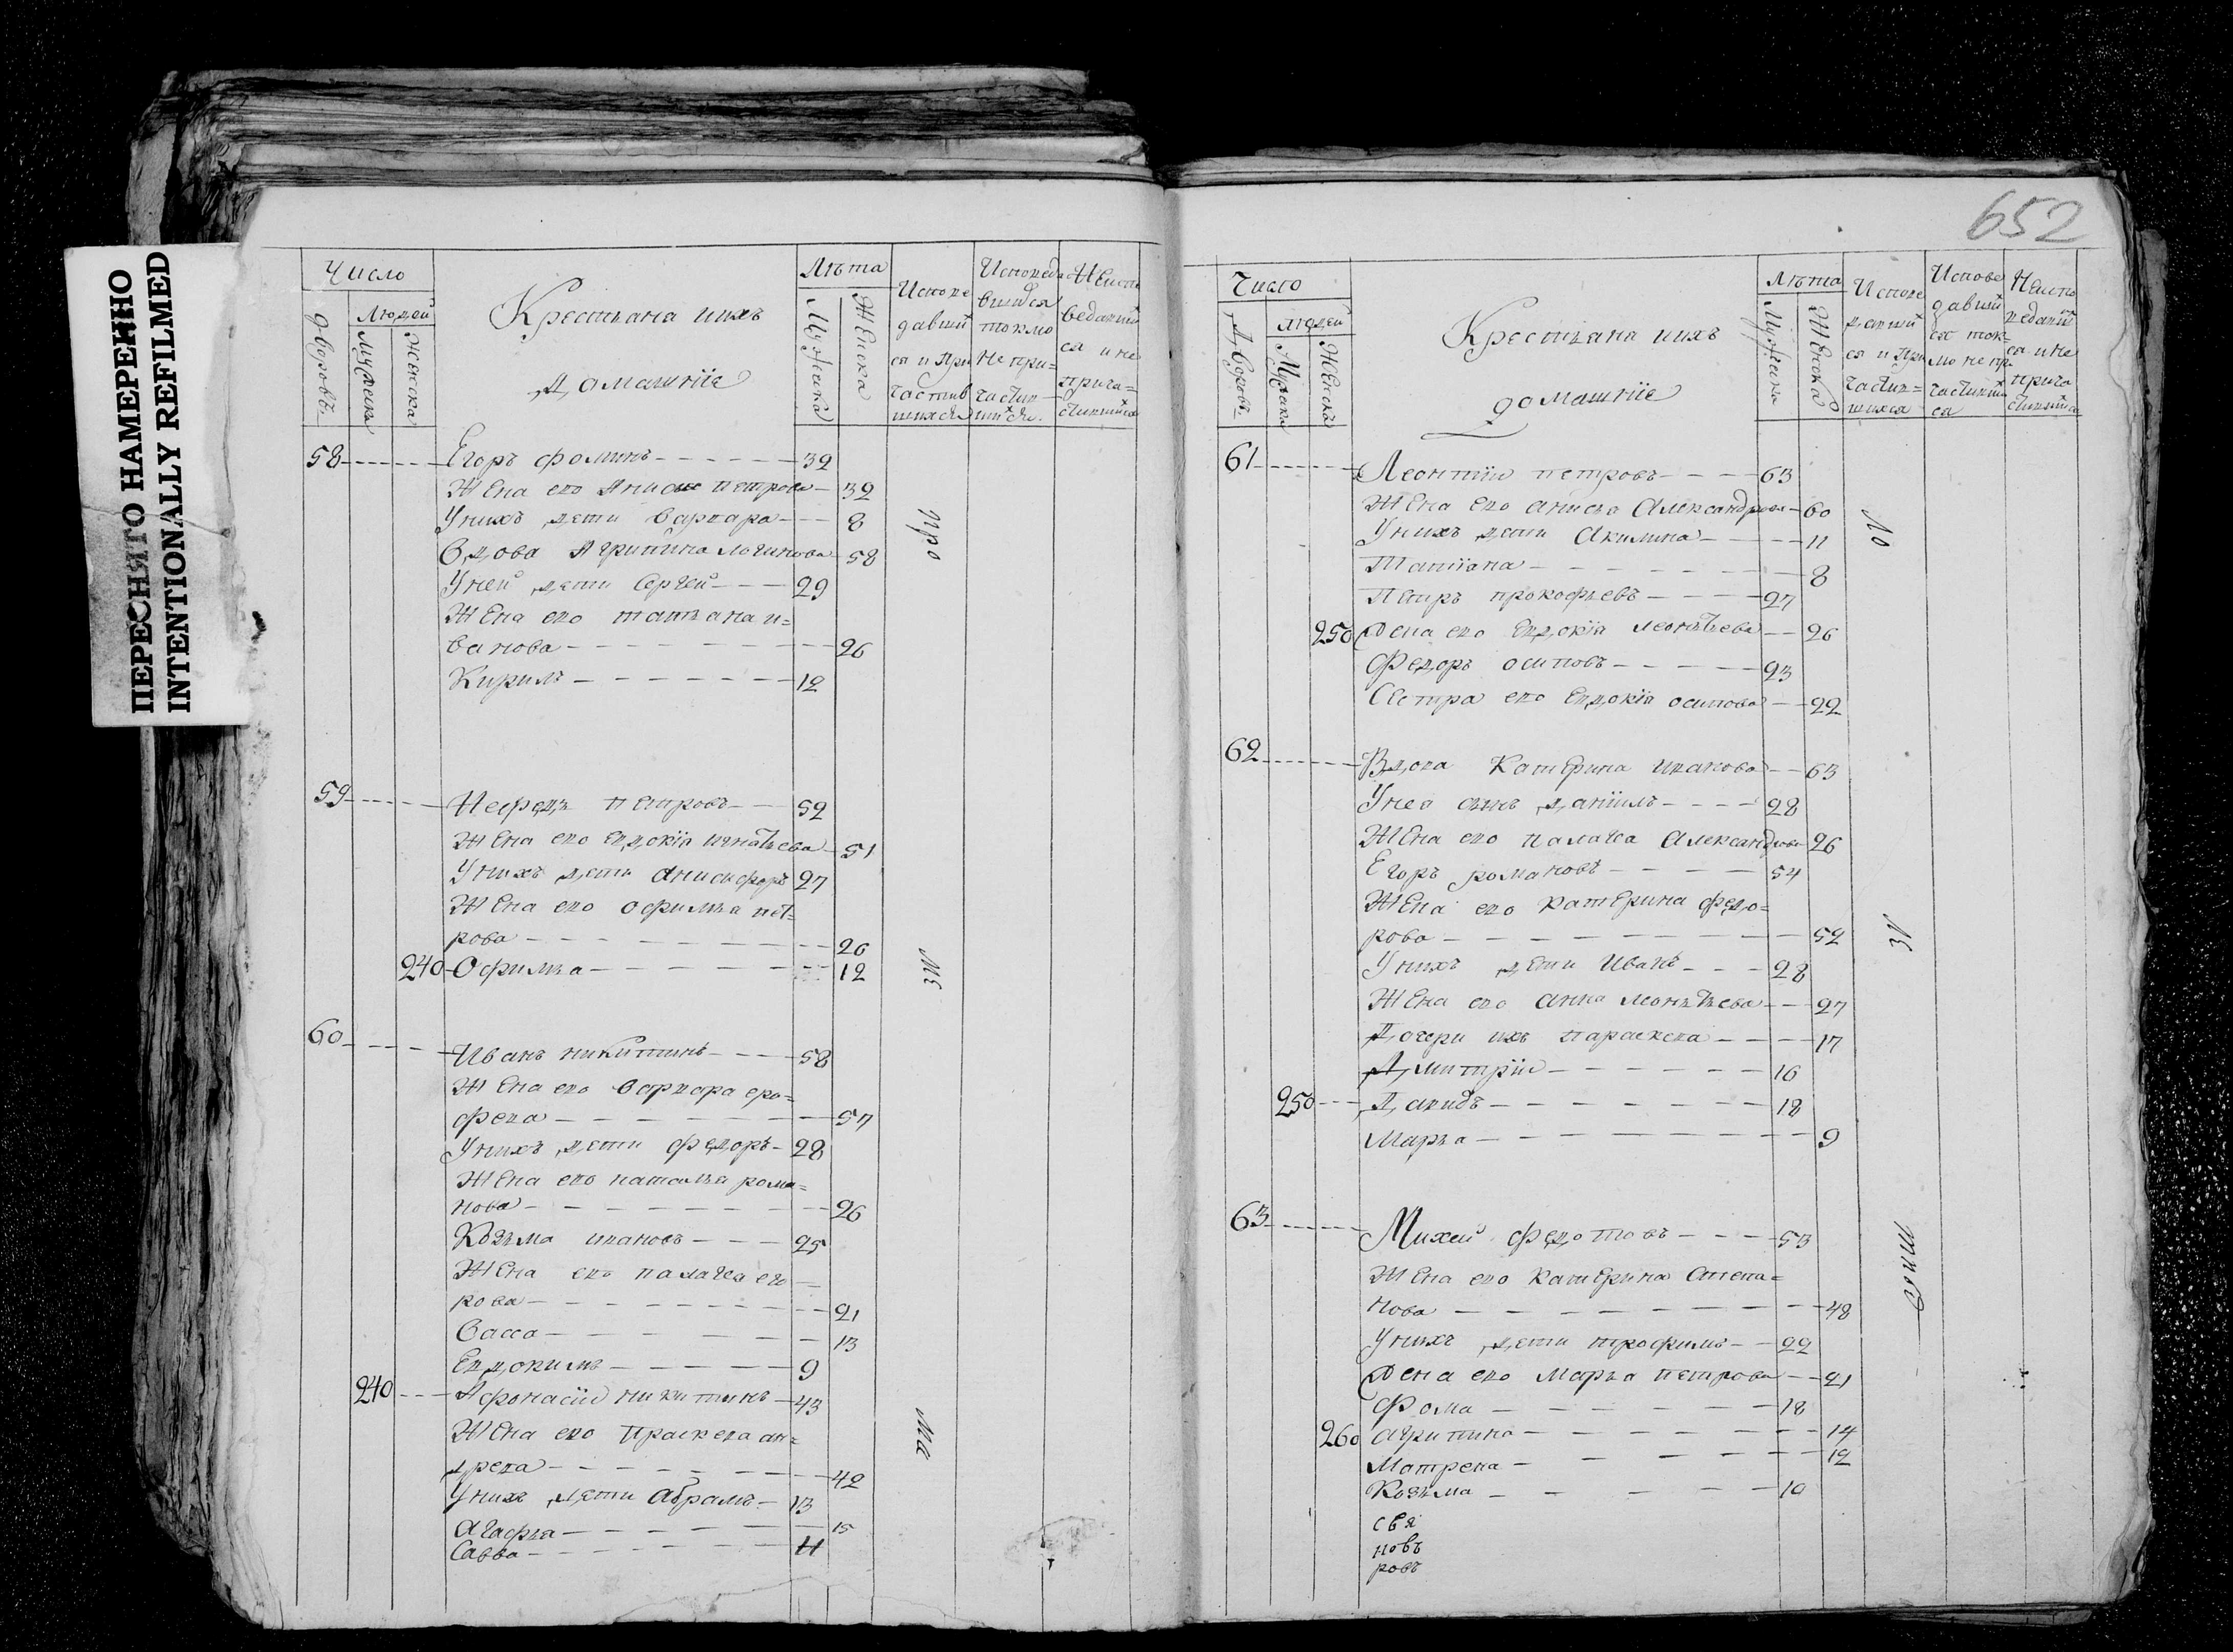 ПЕРЕСНЯТО НАМЕРЕННО
INTENTIONALLY REFILMED
Число
дворовъ
Людей
Мужеска
женска
Крестьяна ихъ
домашніе
Лѣта
Мужеска
Женска
Исповедавшися и Причастившихся
58 Егоръ фоминъ 32
Жена ево Анисья петрова 32
Унихъ дети варвара 8
Вдова Агрипина логинова 58
Уней дети Сергей 29
Жена ево татьана и=
ванова 26
Кирилъ 12
про
59 Нефедъ петровъ 52
Жена ево Евдокія игнатьева 51
Унихъ дети анисифоръ 27
Жена ево офимья пет-
рова 26
240 Офимья 12
60 Иванъ никитинъ 58
Жена ево варвара еро=
феева 57
Унихъ дети федоръ 28
Жена ево наталья рома=
нова 26
Козьма ивановъ 25
Жена ево палагея его
рова 21
Васса 13
Евдокимъ 9
240 Афонасіи никитинъ 43
Жена ево праскева ан=
древа 42
Унихъ дети абрамъ 13
агафья 15
Савва 11
652
Число
Дворовъ
людей
Мужска
Женска
Крестьана ихъ
домашніе
Лѣта
Мужеска
Женска
61 Леонтіи петровъ 63
Жена ево анисья Александрова 60
Унихъ дети Акилина 11
Татіана 8
Петръ прокофьевъ 27
250 Жена ево Евдокія леонтьева 26
Федоръ осиповъ 23
Сестра ево Евдокія осипова 22
62 Вдова Катерина иванова 63
Унео сынъ даніилъ 28
Жена ево палагеа Александрова 26
Егоръ романовъ 54
Жена ево катерина федо=
рова 52
Унихъ дети Иванъ 28
Жена ево анна леонтьева 27
Дочери ихъ параскева 17
Дмитріи 16
250 Давидъ 18
Марья 9
63 Михеи федотовъ 53
Жена ево катерина степа=
нова 48
Унихъ дети трофимъ 22
Жена ево марьа петрова 21
Фома 18
260 агрипина 14
Матрена 12
Козьма 10
свя
новъ
ровъ